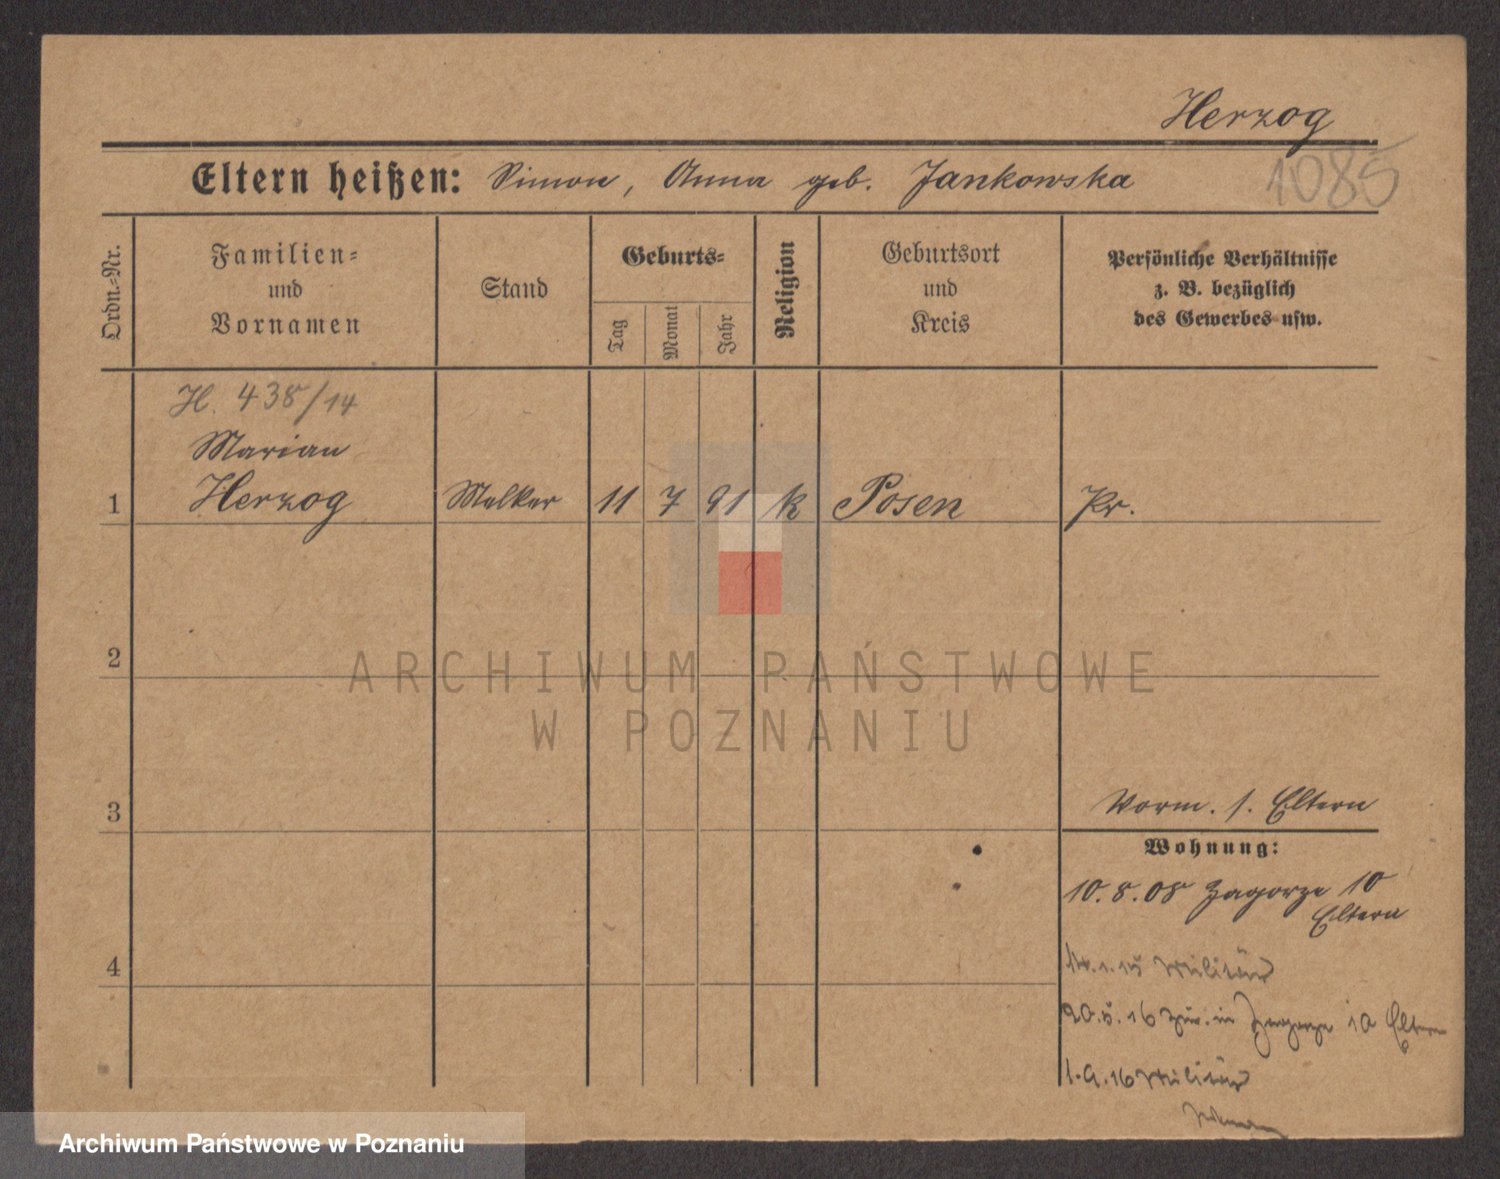 Herzog
1085
Eltern heißen: Simon, Anna geb. Jankowska
Ordn.-Nr.
Familien-
und
Vornamen
Stand
Geburts-
Tag
Monat
Jahr
Religion
Geburtsort
und
Kreis
Persönliche Verhältnisse
z. B. bezüglich
des Gewerbes usw.
H. 438/14
Marian
1 Herzog Melker 11 7 91 k Posen Pr.
2
ARCHIWUM PAŃSTWOWE
W POZNANIU
3
Vorm. s. Eltern
Wohnung:
10.8.08 Zagorze 10
Eltern
4
Militär
in Zagorze 10 Eltern
1.9.16 Militär
Archiwum Państwowe w Poznaniu